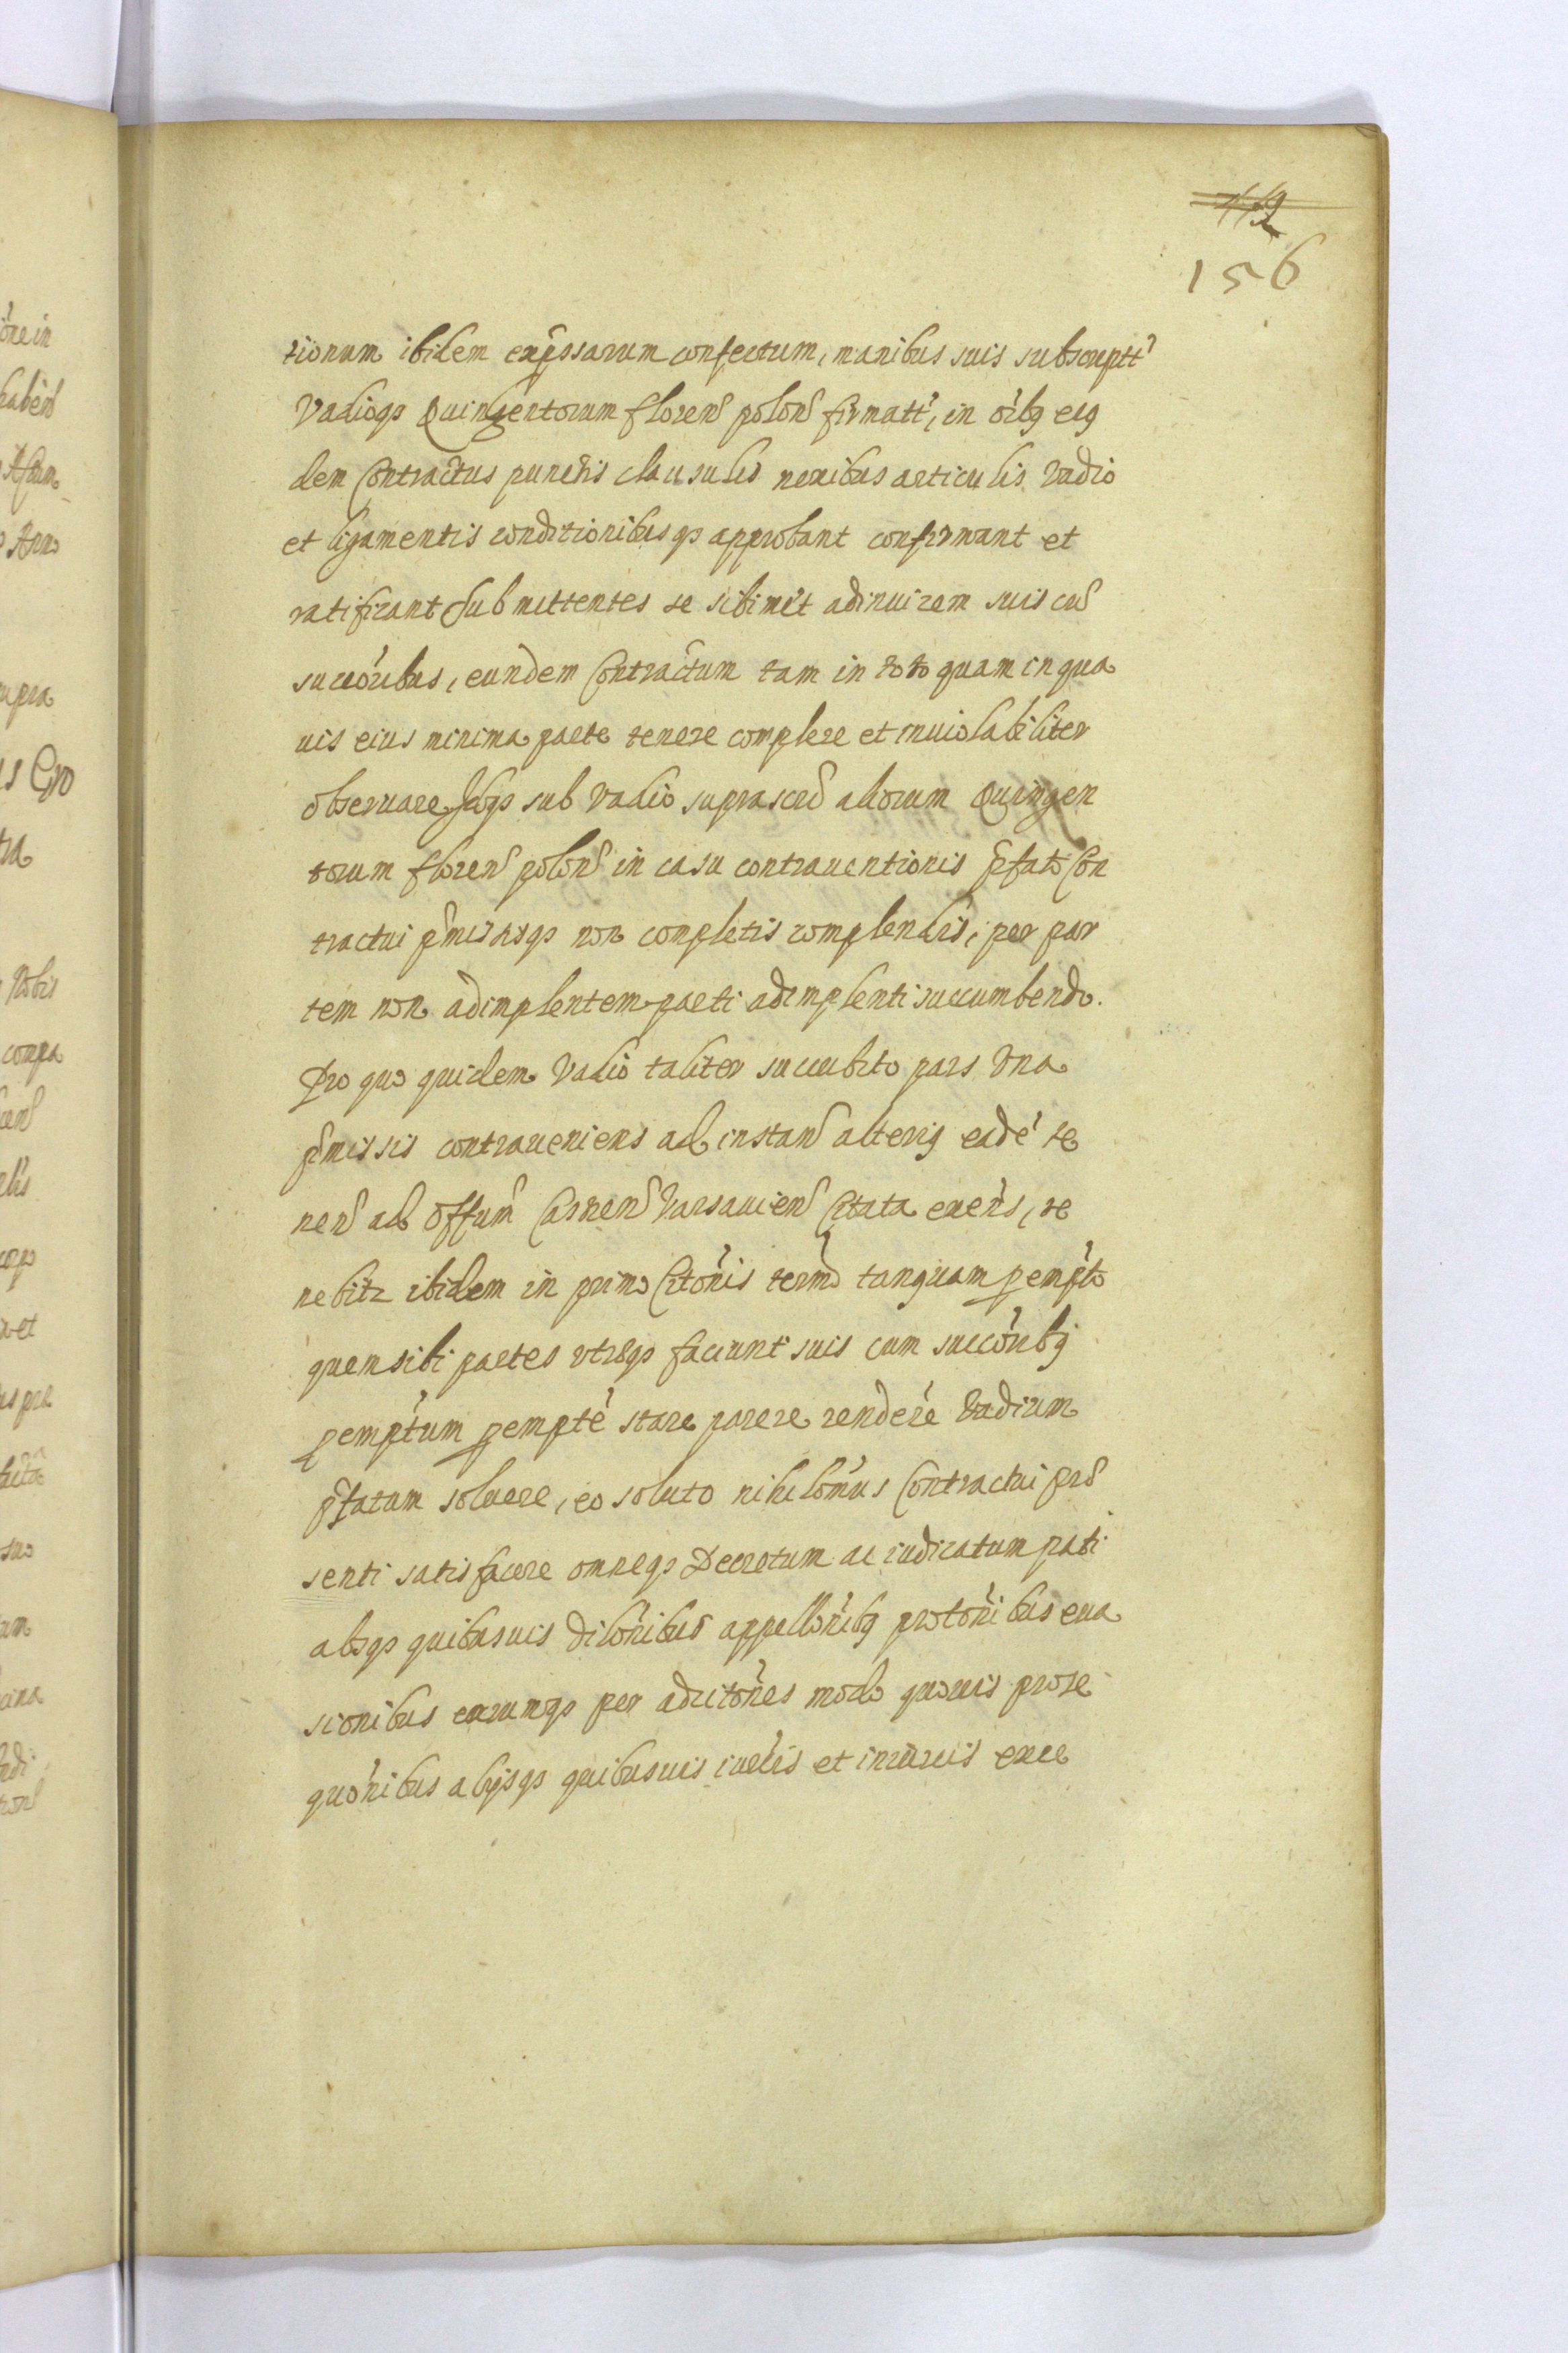 112
156
tionum ibidem expssarum confectum, manibus suis subscriptt
Vadioqs Quingentorum floren polon firmatt, in oibq eiq
dem Contractus punctis clausulis nexibus articulis vadio
et ligamentis conditionibusqs approbant confirmant et
ratificant submittentes se sibimet adinuicem suis cu
succoribus, eundem Contractum tam in toto quam in qua
uis eius minima parte tenere complere et inuiolabiliter
obseruare idqs sub vadio suprascr aliorum Quingen
torum floren polon in casu contrauentionis pfato Con
tractui pmissisqs non completis complendis, per par
tem non adimplentem parti adimplenti succumbendo.
Pro quo quidem Vadio taliter succubito pars vna
pmissis contraueniens ad instan alteriq eade te
nen ad Offum Castren Varsauien Citata exens, te
nebitz ibidem in primo Citonis termo tanquam pempto
quem sibi partes vtreqs faciunt suis cum succoribq
pemptum pempte stare parere rendere Vadium
pfatum soluere, eo soluto nihilomus Contractui prae
senti satisfacere omneqs Decretum ac iudicatum pati
absqs quibusuis dilonibus appellonibq protonibus eua
sionibus earumqs per adcitones modo quouis prose
quonibus alijsqs quibusuis iuris et iniuris exce